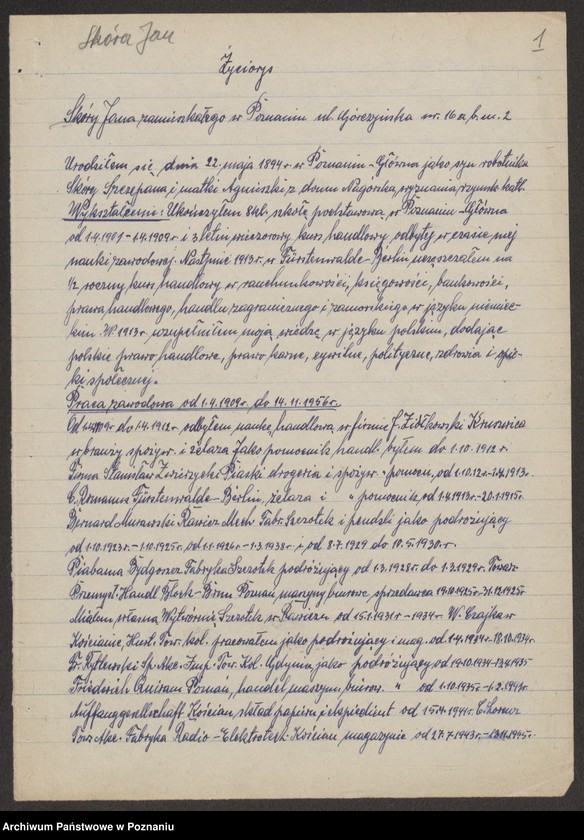 Skóra Jan
1
Życiorys
Skóry Jana zamieszkałego w Poznaniu ul. Górczyńska nr. 16a, b. m. 2
Urodziłem się dnia 22. maja 1894 r. w Poznaniu-Główna jako syn robotnika
Skóry Szczepana, i matki Agnieszki z domu Nagórska, wyznania rzymsko katl.
Wykształcenie: Ukończyłem 8 kl. szkołę podstawową w Poznaniu-Główna
od 1.4.1901 - 1.4.1909 r. i 3 letni wieczorowy kurs handlowy, odbytej w czasie mej
nauki zawodowej. Następnie 1913 r. w Fürstenwalde-Berlin uczęszczałem na
1/2 roczny kurs handlowy w rachunkowości, księgowości, bankowości,
prawa handlowego, handlu zagranicznego i zamorskiego w języku niemiec-
kim. W 1913 r uzupełniłem moją wiedzę w języku polskim, dodając
polskie prawo handlowe, prawo karne, cywilne, polityczne, zdrowia i opie-
ki społecznej.
Praca zawodowa od 1.4.1909 r. do 14.11.1956 r.
Od 1.4.1909 r do 1.4.1912 r. odbyłem naukę handlową w firmie J. Ziółkowski Kruszwica
w branży spożyw. i żelaza. Jako pomocnik handl. byłem do 1.10.1912 r.
Firma Stanisław Zwierzycki Piaski drogeria i spożyw. pomocn. od 1.10.12 r. - 1.4.1913 r.
Fürstenwalde-Berlin, żelaza i " pomocnik od 1.4.1913 r. - 20.1.1915 r.
Bernard Murawski Rawicz Mech. Fabr. Szczotek i pendzli jako podróżujący
od 1.10.1923 r. - 1.10.1925 r. od 1.1.1926 r. - 1.3.1938 r i od 8.7.1929 do 10.5.1930 r.
Piabama Bydgoszcz Fabryka Szczotek podróżujący od 1.3.1928 r. do 1.3.1929 r. Towarz.
Przemysł. Handl. Block-Brun Poznań maszyny biurowe sprzedawca 19.10.1925 r. - 31.12.1925 r.
Miałem własną Wytwórnię Szczotek w Rawiczu od 15.1.1931 r - 1934 r. W. Czajka w
Kościanie, Hurt. Tow. kol. pracowałem jako podróżujący i mag. od 1.4.1934 r. - 18.10.1934 r.
Sp. Akc. Imp. Tow. Kol. Gdynia jako podróżujący od 19.10.1934 -
Friedrich Poznań, handel maszyn biurow. " od 1.10.1935 r. - 1.2.1941 r.
Auffanggesellschaft Kościan, skład papieru, ekspedient od 15.4.1941 r. C. Lorenz
Tow. Akc. Fabryka Radio-Elektrotech. Kościan magazynie od 27.7.1943 r. -